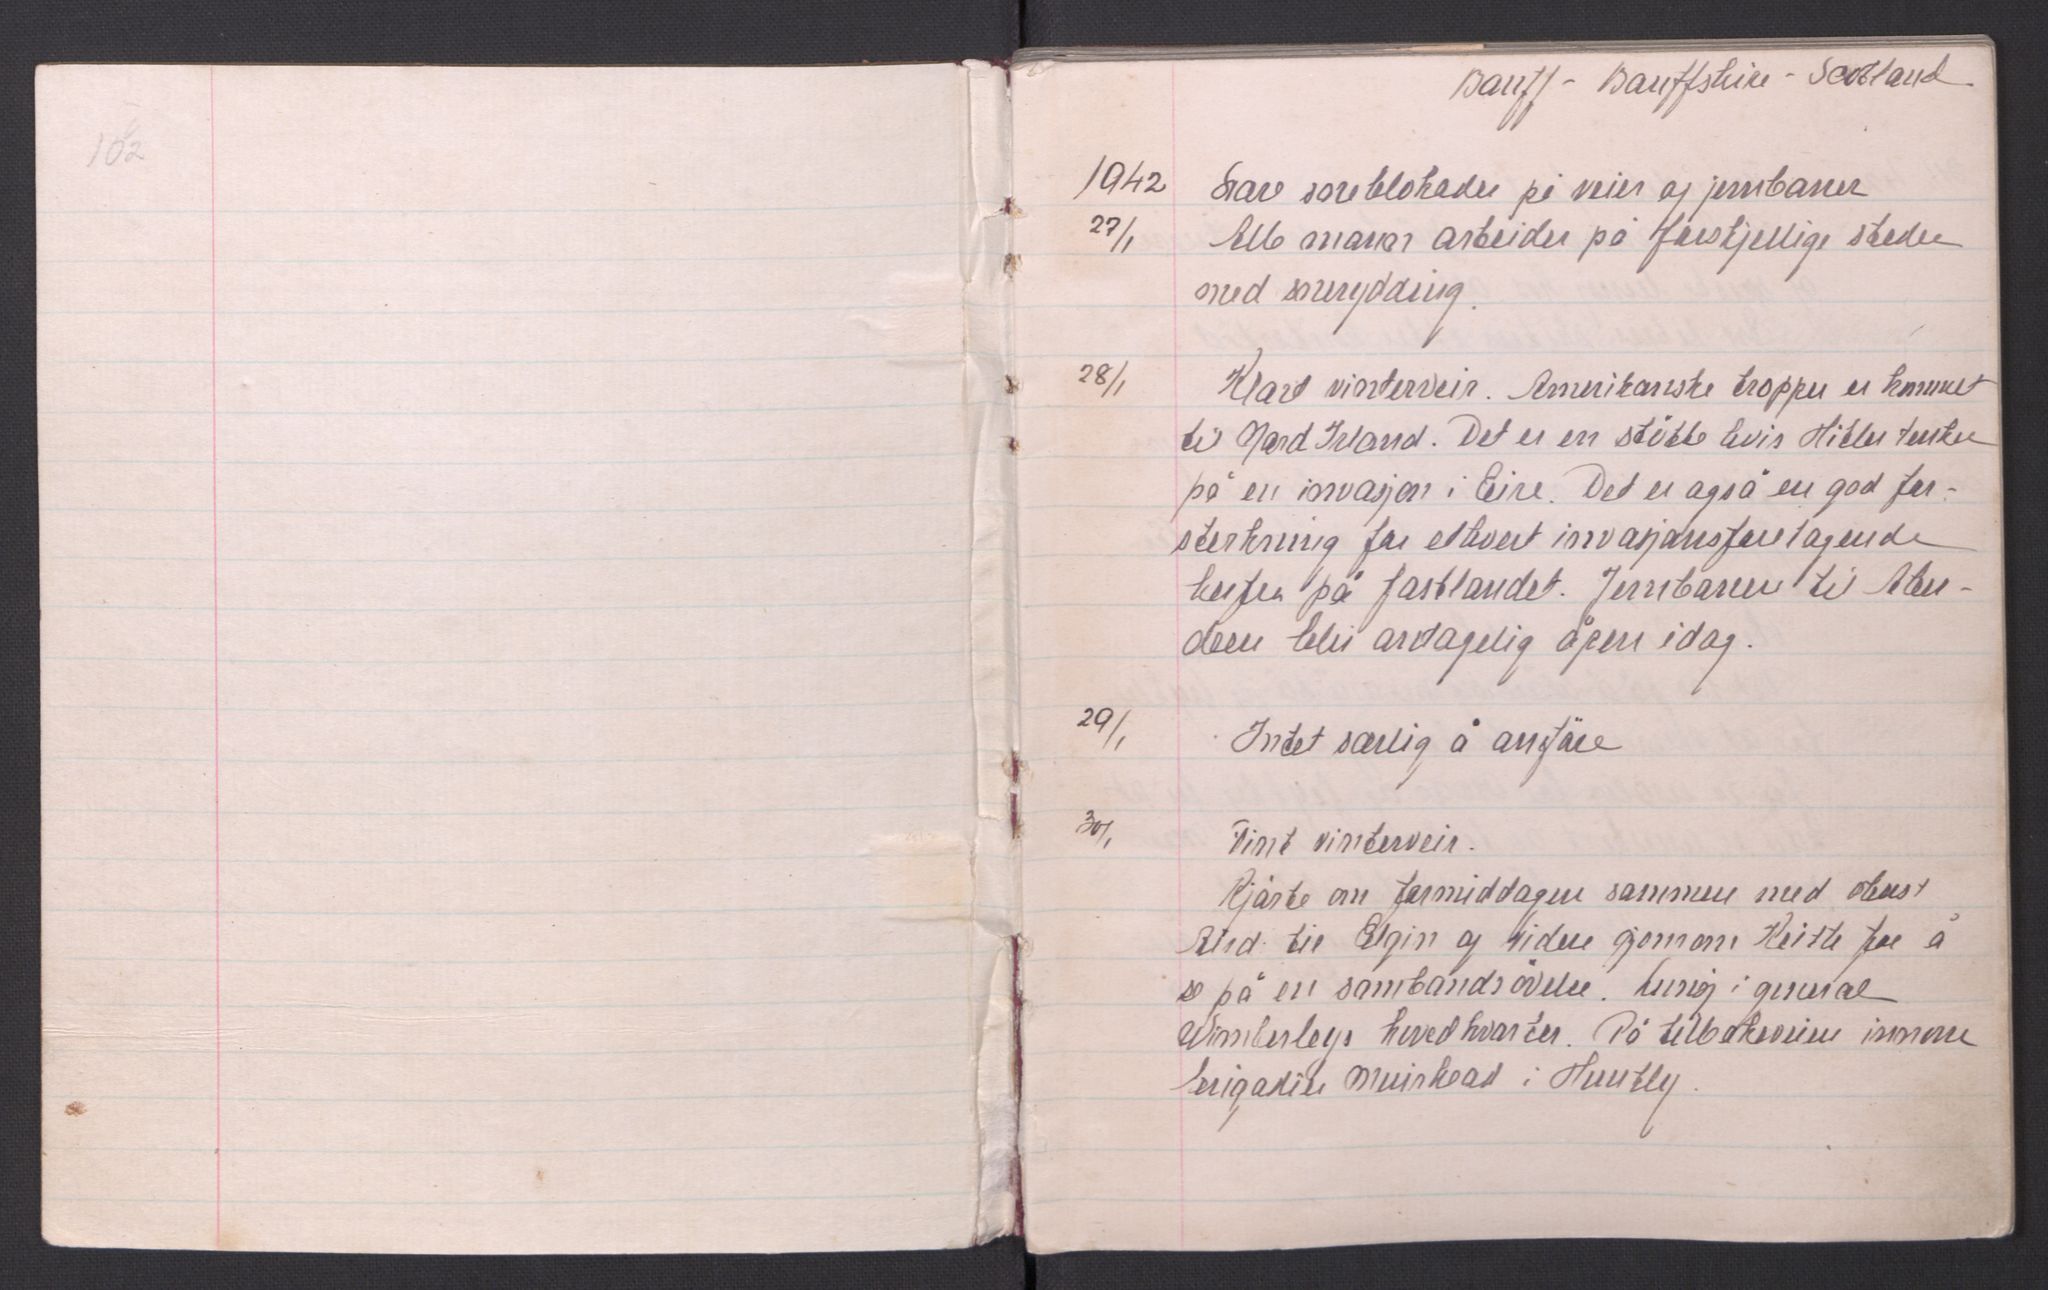 102
Banff - Banffshire - Scotland
1942 Svære sneblokader på veier og jernbaner
27/1 Alle mann arbeider på forskjellige steder
med snerydding.
28/1 Klart vinterveir. Amerikanske tropper er kommet
til Nord Irland. Det er en støtte hvis Hitler tenker
på en invasjon i Eire. Det er også en god for-
sterkning for ethvert invasjonsforetagende
herfra på fastlandet. Jernbanen til Aber-
deen blir antagelig åpen idag.
29/1 Intet særlig å anføre
30/1 Fint vinterveir.
Kjørte om formiddagen sammen med oberst
til Elgin og videre gjennom Keith for å
se på en sambandsøvelse. Lunsj i general
Wimberleys hovedkvarter. På tilbakeveien innom
brigadier Muirhead i Huntly.